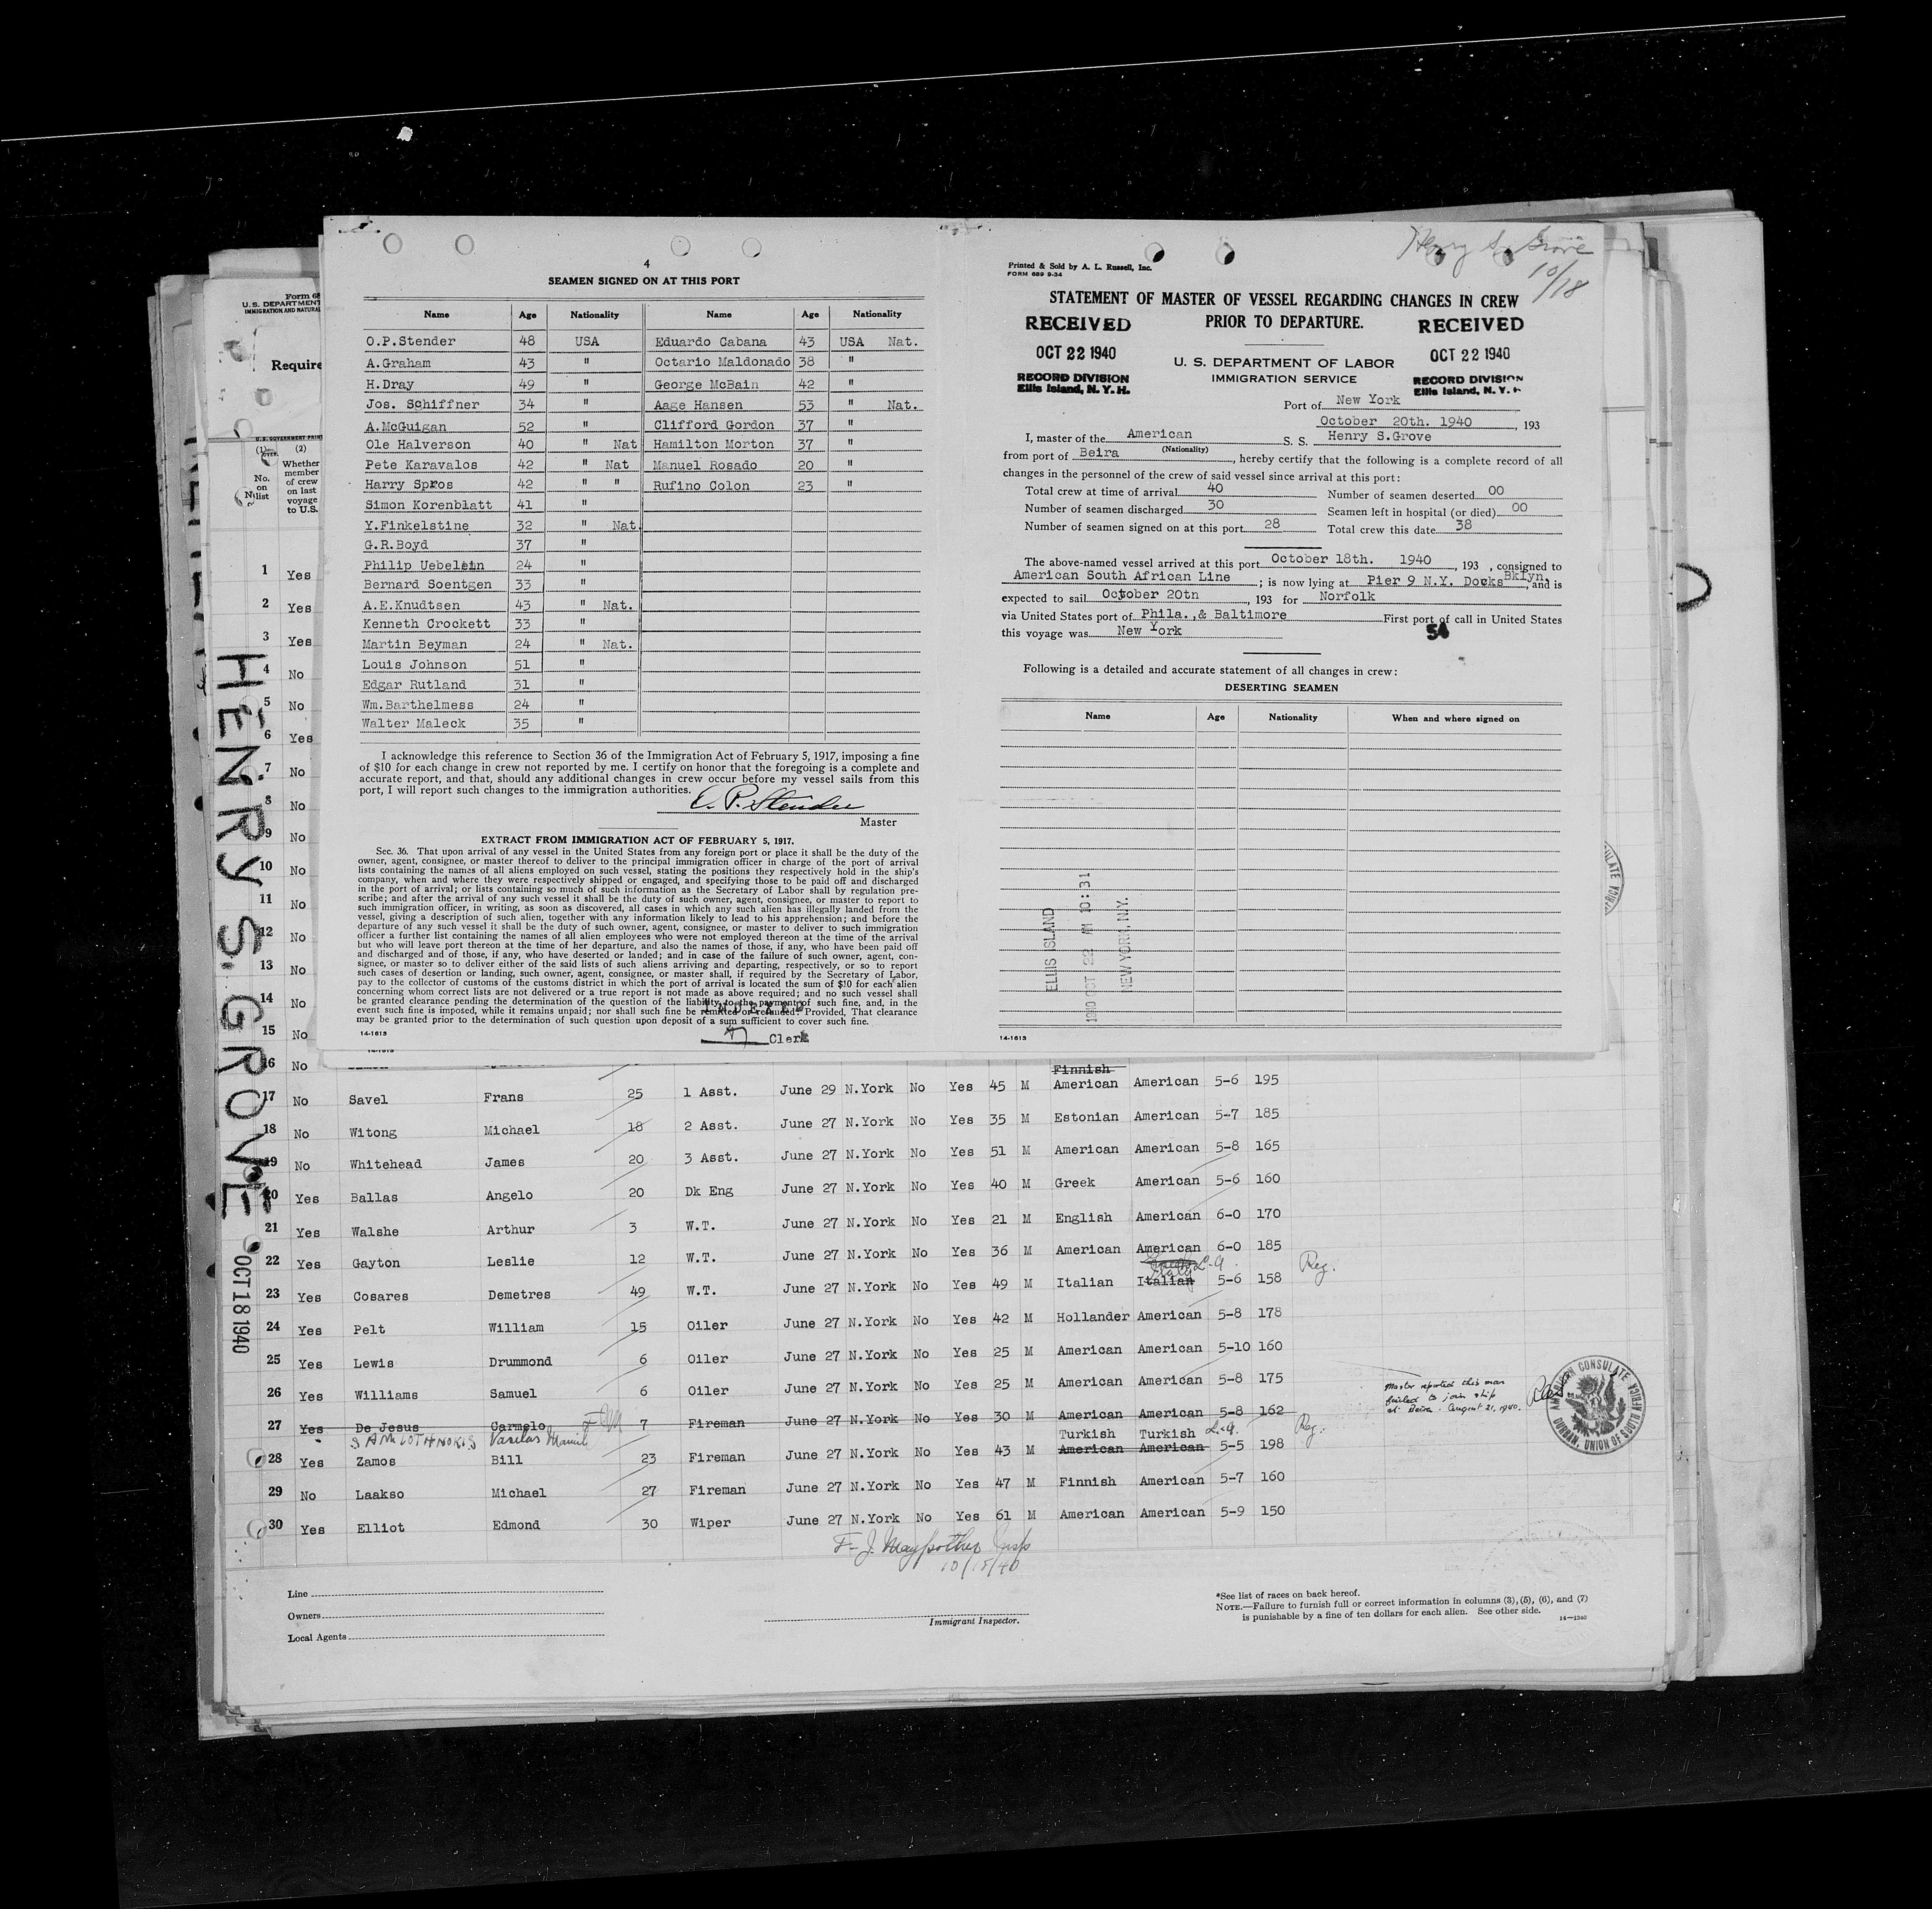 Henry S. Grove
10/18
4
SEAMEN SIGNED ON AT THIS PORT
Name Age Nationality Name Age Nationality
O.P.Stender 48 USA Eduardo Cabana 43 USA Nat.
A.Graham 43 " Octario Maldonado 38 "
H.Dray 49 " George McBain 42 "
Jos. Schiffner 34 " Aage Hansen 53 " Nat.
A.McGuigan 52 " Clifford Gordon 37 "
Ole Halverson 40 " Nat Hamilton Morton 37 "
Pete Karavalos 42 " Nat Manuel Rosado 20 "
Harry Spros 42 " " Rufino Colon 23 "
Simon Korenblatt 41 "
Y.Finkelstine 32 " Nat.
G.R.Boyd 37 "
Philip Uebelein 24 "
Bernard Soentgen 33 "
A.E.Knudtsen 43 " Nat.
Kenneth Crockett 33 "
Martin Beyman 24 " Nat.
Louis Johnson 51 "
Edgar Rutland 31 "
Wm.Barthelmess 24 "
Walter Maleck 35 "
I acknowledge this reference to Section 36 of the Immigration Act of February 5, 1917, imposing a fine
of $10 for each change in crew not reported by me. I certify on honor that the foregoing is a complete and
accurate report, and that, should any additional changes in crew occur before my vessel sails from this
port, I will report such changes to the immigration authorities.
O. P. Stender
Master
EXTRACT FROM IMMIGRATION ACT OF FEBRUARY 5, 1917.
Sec. 36. That upon arrival of any vessel in the United States from any foreign port or place it shall be the duty of the
owner, agent, consignee, or master thereof to deliver to the principal immigration officer in charge of the port of arrival
lists containing the names of all aliens employed on such vessel, stating the positions they respectively hold in the ship's
company, when and where they were respectively shipped or engaged, and specifying those to be paid off and discharged
in the port of arrival; or lists containing so much of such information as the Secretary of Labor shall by regulation pre-
scribe; and after the arrival of any such vessel it shall be the duty of such owner, agent, consignee, or master to report to
such immigration officer, in writing, as soon as discovered, all cases in which any such alien has illegally landed from the
vessel, giving a description of such alien, together with any information likely to lead to his apprehension; and before the
departure of any such vessel it shall be the duty of such owner, agent, consignee, or master to deliver to such immigration
officer a further list containing the names of all alien employees who were not employed thereon at the time of the arrival
but who will leave port thereon at the time of her departure, and also the names of those, if any, who have been paid off
and discharged and of those, if any, who have deserted or landed; and in case of the failure of such owner, agent, con-
signee, or master so to deliver either of the said lists of such aliens arriving and departing, respectively, or so to report
such cases of desertion or landing, such owner, agent, consignee, or master shall, if required by the Secretary of Labor,
pay to the collector of customs of the customs district in which the port of arrival is located the sum of $10 for each alien
concerning whom correct lists are not delivered or a true report is not made as above required; and no such vessel shall
be granted clearance pending the determination of the question of the liability to the payment of such fine, and, in the
event such fine is imposed, while it remains unpaid; nor shall such fine be remitted or refunded: Provided, That clearance
may be granted prior to the determination of such question upon deposit of a sum sufficient to cover such fine.
INDEXED
Clerk
14-1613
Printed & Sold by A. L. Russell, Inc.
FORM 689 9-34
STATEMENT OF MASTER OF VESSEL REGARDING CHANGES IN CREW
PRIOR TO DEPARTURE.
RECEIVED
OCT 22 1940
RECORD DIVISION
Ellis Island, N. Y. H.
RECEIVED
OCT 22 1940
RECORD DIVISION
Ellis Island, N. Y.
U. S. DEPARTMENT OF LABOR
IMMIGRATION SERVICE
Port of New York
October 20th. 1940, 193
I, master of the American S. S. Henry S.Grove
(Nationality)
from port of Beira, hereby certify that the following is a complete record of all
changes in the personnel of the crew of said vessel since arrival at this port:
Total crew at time of arrival 40 Number of seamen deserted 00
Number of seamen discharged 30 Seamen left in hospital (or died) 00
Number of seamen signed on at this port 28 Total crew this date 38
The above-named vessel arrived at this port October 18th. 1940, 193 , consigned to
American South African Line; is now lying at Pier 9 N.Y. Docks Bklyn., and is
expected to sail October 20tn, 193 for Norfolk
via United States port of Phila.,& Baltimore First port of call in United States
this voyage was New York
54
Following is a detailed and accurate statement of all changes in crew:
DESERTING SEAMEN
Name Age Nationality When and where signed on
ELLIS ISLAND
1940 OCT 22 AM 10:31
NEW YORK, N.Y.
14-1613
Form 68
U. S. DEPARTMENT
IMMIGRATION AND NATURAL
Require
U.S. GOVERNMENT PRIN
(1) (2)
No. on list
Whether member of crew on last voyage to U.S.
HENRY S. GROVE
OCT 18 1940
1 Yes
2 Yes
3 Yes
4 No
5 No
6 Yes
7 No
8 No
9 No
10 No
11 No
12 No
13 No
14 No
15 No
16 No
17 No Savel Frans 25 1 Asst. June 29 N.York No Yes 45 M Finnish American American 5-6 195
18 No Witong Michael 18 2 Asst. June 27 N.York No Yes 35 M Estonian American 5-7 185
19 No Whitehead James 20 3 Asst. June 27 N.York No Yes 51 M American American 5-8 165
20 Yes Ballas Angelo 20 Dk Eng June 27 N.York No Yes 40 M Greek American 5-6 160
21 Yes Walshe Arthur 3 W.T. June 27 N.York No Yes 21 M English American 6-0 170
22 Yes Gayton Leslie 12 W.T. June 27 N.York No Yes 36 M American American 6-0 185
23 Yes Cosares Demetres 49 W.T. June 27 N.York No Yes 49 M Italian Italian Italy 5-6 158 Reg.
24 Yes Pelt William 15 Oiler June 27 N.York No Yes 42 M Hollander American 5-8 178
25 Yes Lewis Drummond 6 Oiler June 27 N.York No Yes 25 M American American 5-10 160
26 Yes Williams Samuel 6 Oiler June 27 N.York No Yes 25 M American American 5-8 175
27 Yes De Jesus Carmelo 7 Fireman June 27 N.York No Yes 30 M American American 5-8 162
Master reported this man
failed to join ship
at Beira. August 21, 1940.
Turkish Turkish Reg.
28 Yes Zamos Bill 23 Fireman June 27 N.York No Yes 43 M American American 5-5 198
29 No Laakso Michael 27 Fireman June 27 N.York No Yes 47 M Finnish American 5-7 160
30 Yes Elliot Edmond 30 Wiper June 27 N.York No Yes 61 M American American 5-9 150
AMERICAN CONSULATE
DURBAN, UNION OF SOUTH AFRICA
10/18/40
Line
Owners
Local Agents
Immigrant Inspector.
*See list of races on back hereof.
NOTE.—Failure to furnish full or correct information in columns (3), (5), (6), and (7)
is punishable by a fine of ten dollars for each alien. See other side.
14—1240